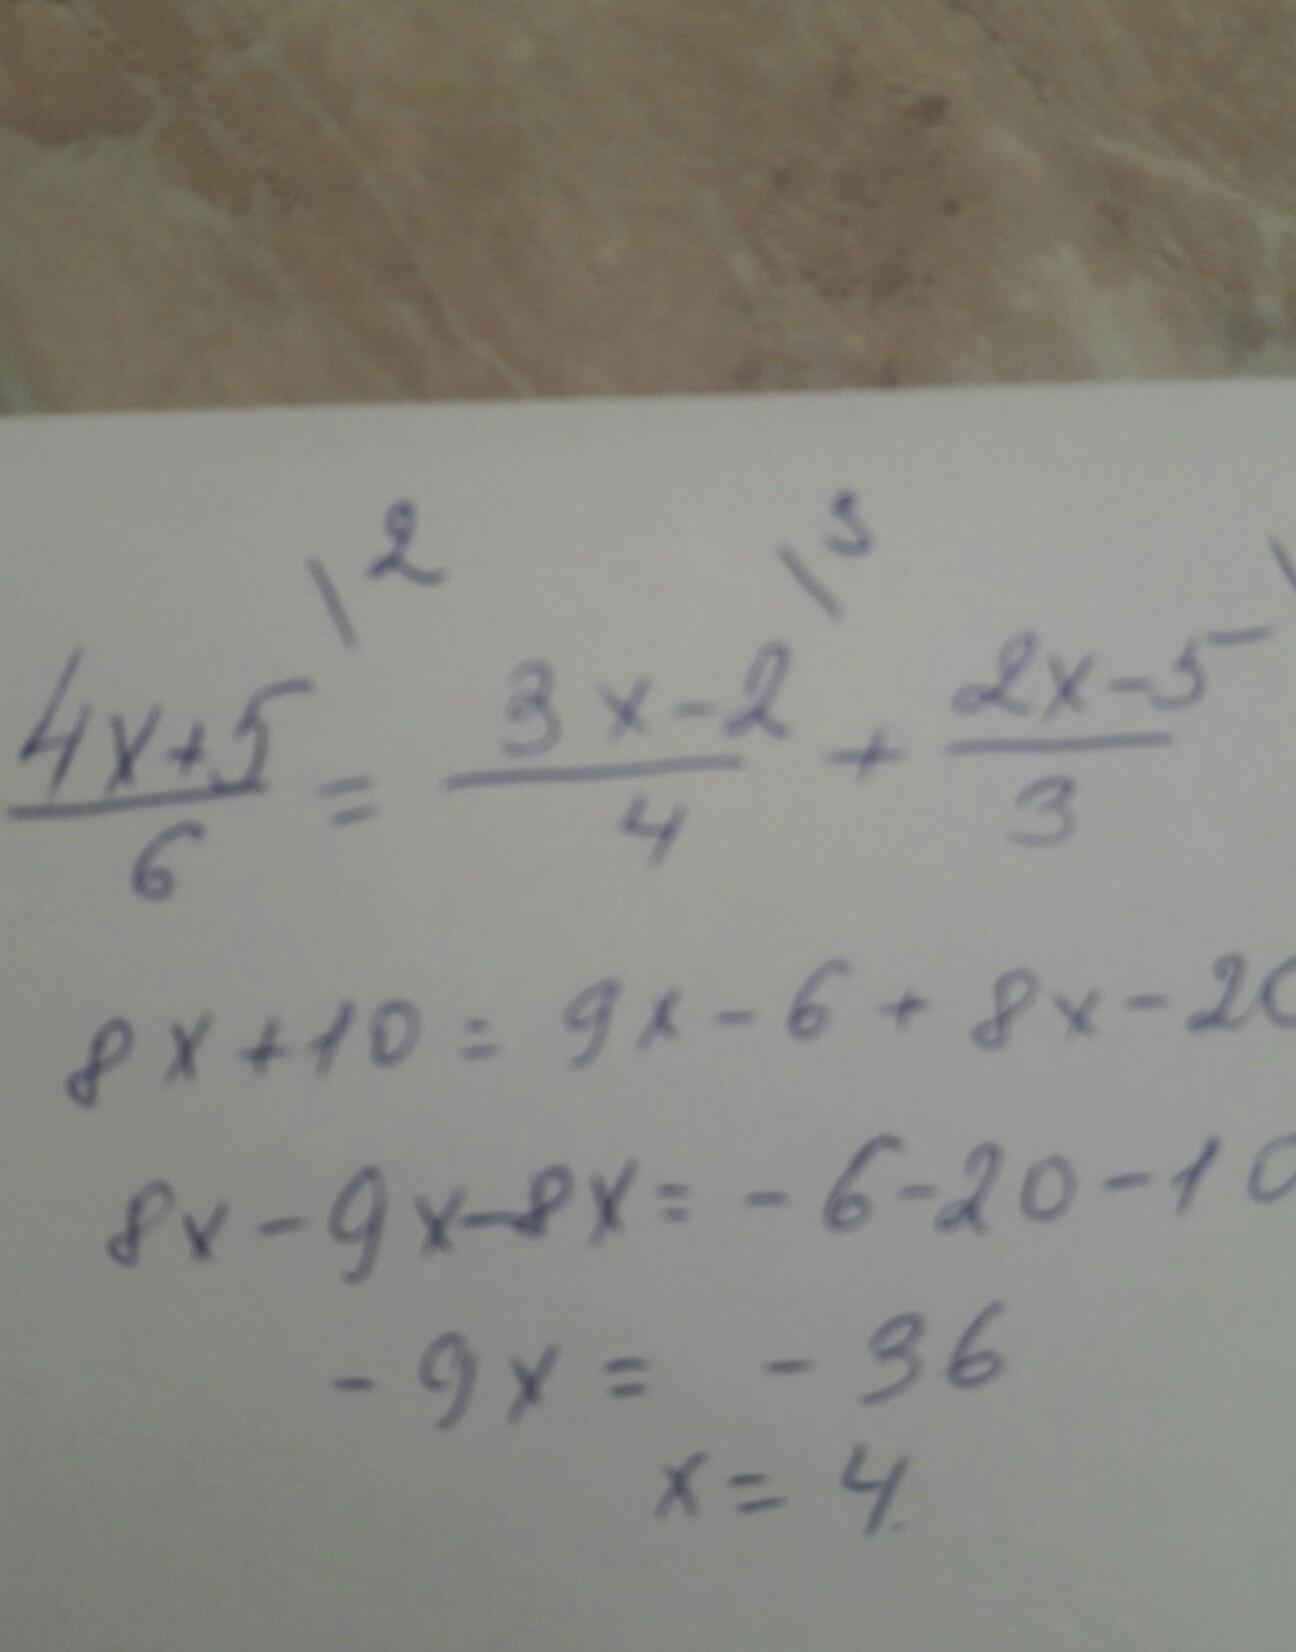 \2 \3 \
4x+5/6 = 3x-2/4 + 2x-5/3
8x+10=9x-6+8x-20
8x-9x-8x=-6-20-10
-9x= -36
x=4.